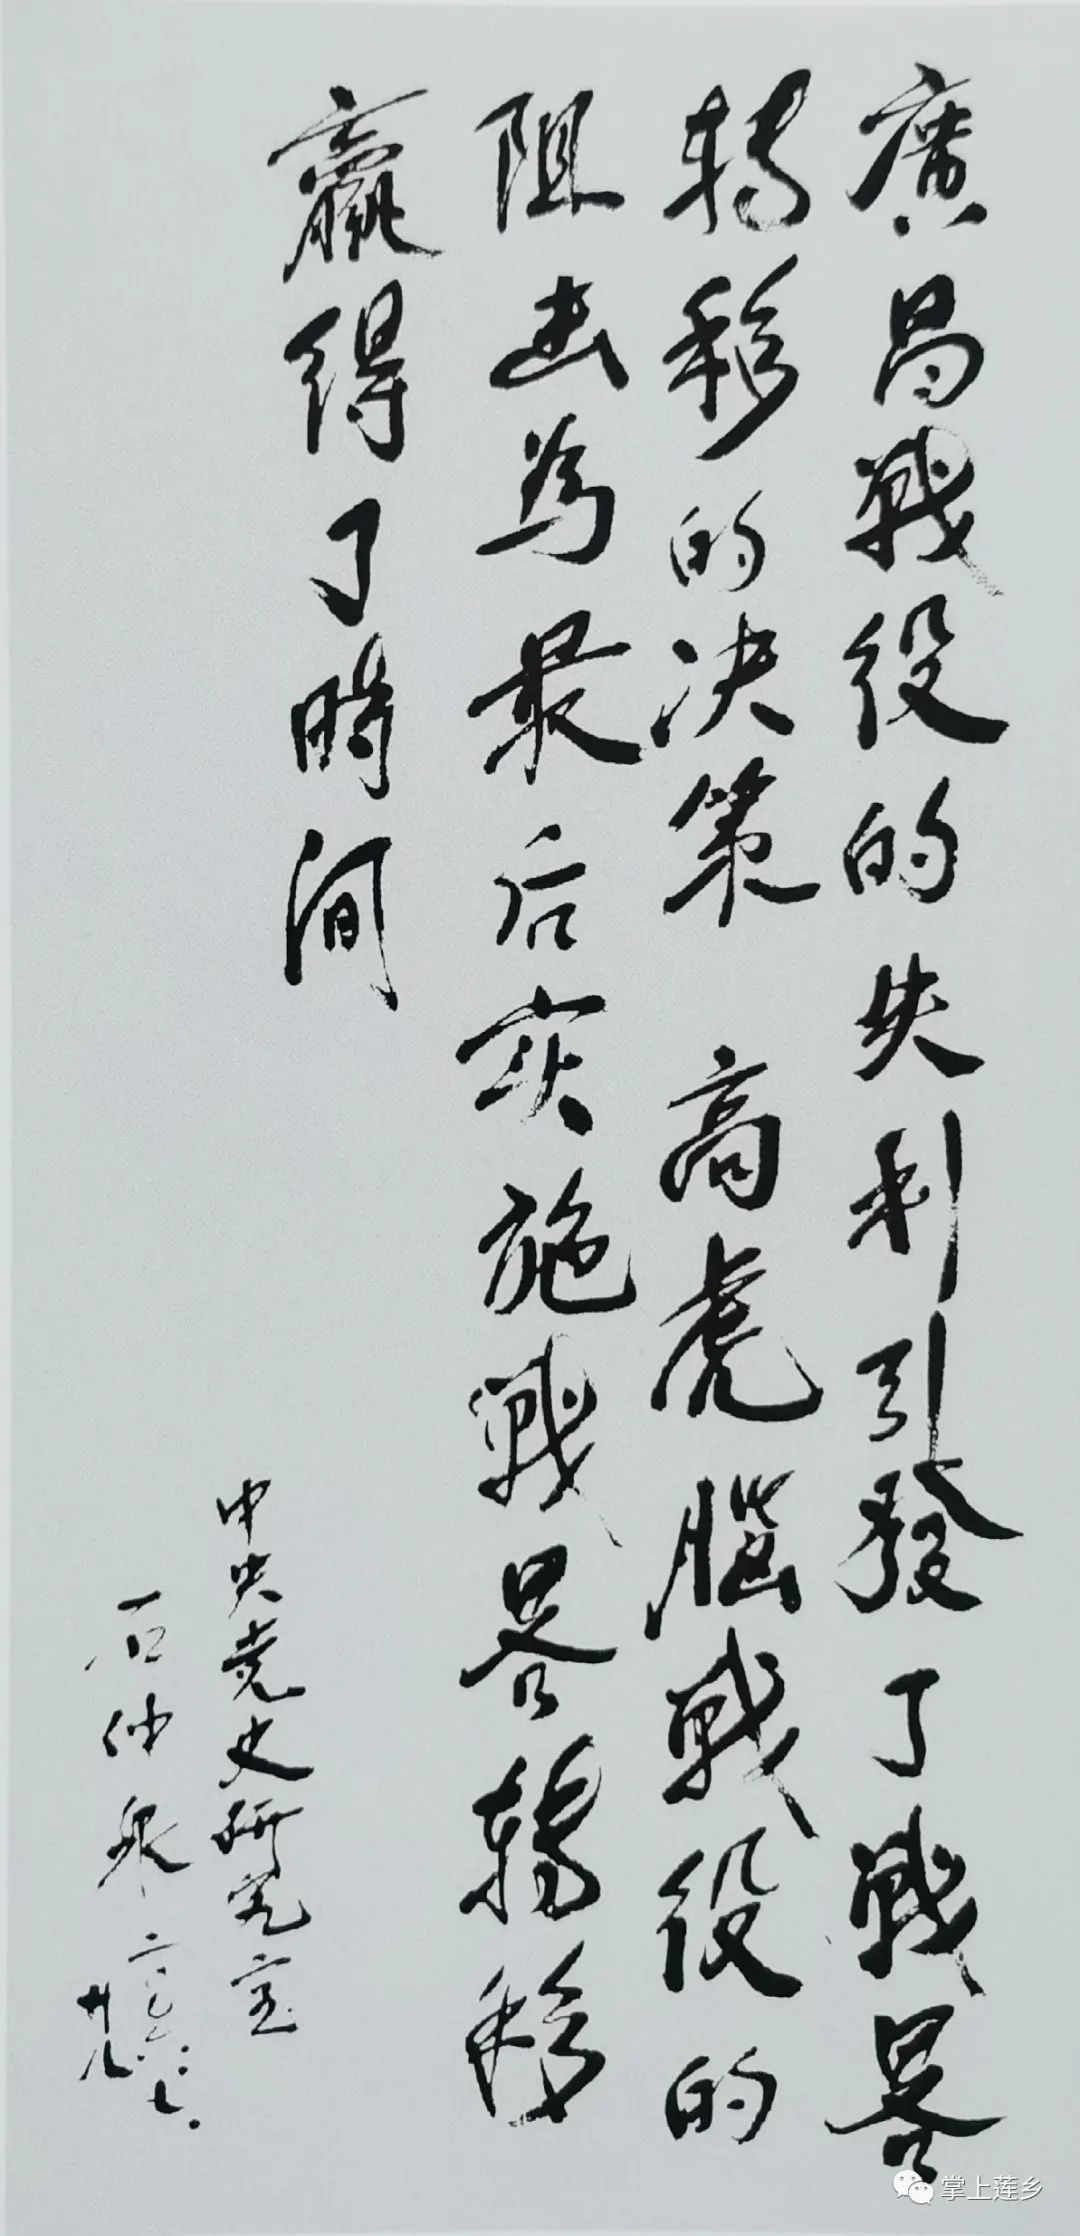 廣昌戰役的失利引發了戰畧
转移的决策 高虎腦戰役的
阻击為最后实施戰畧转移
赢得了時间
中央党史研究室
石仲泉 二〇〇六.七.
廿八
掌上莲乡